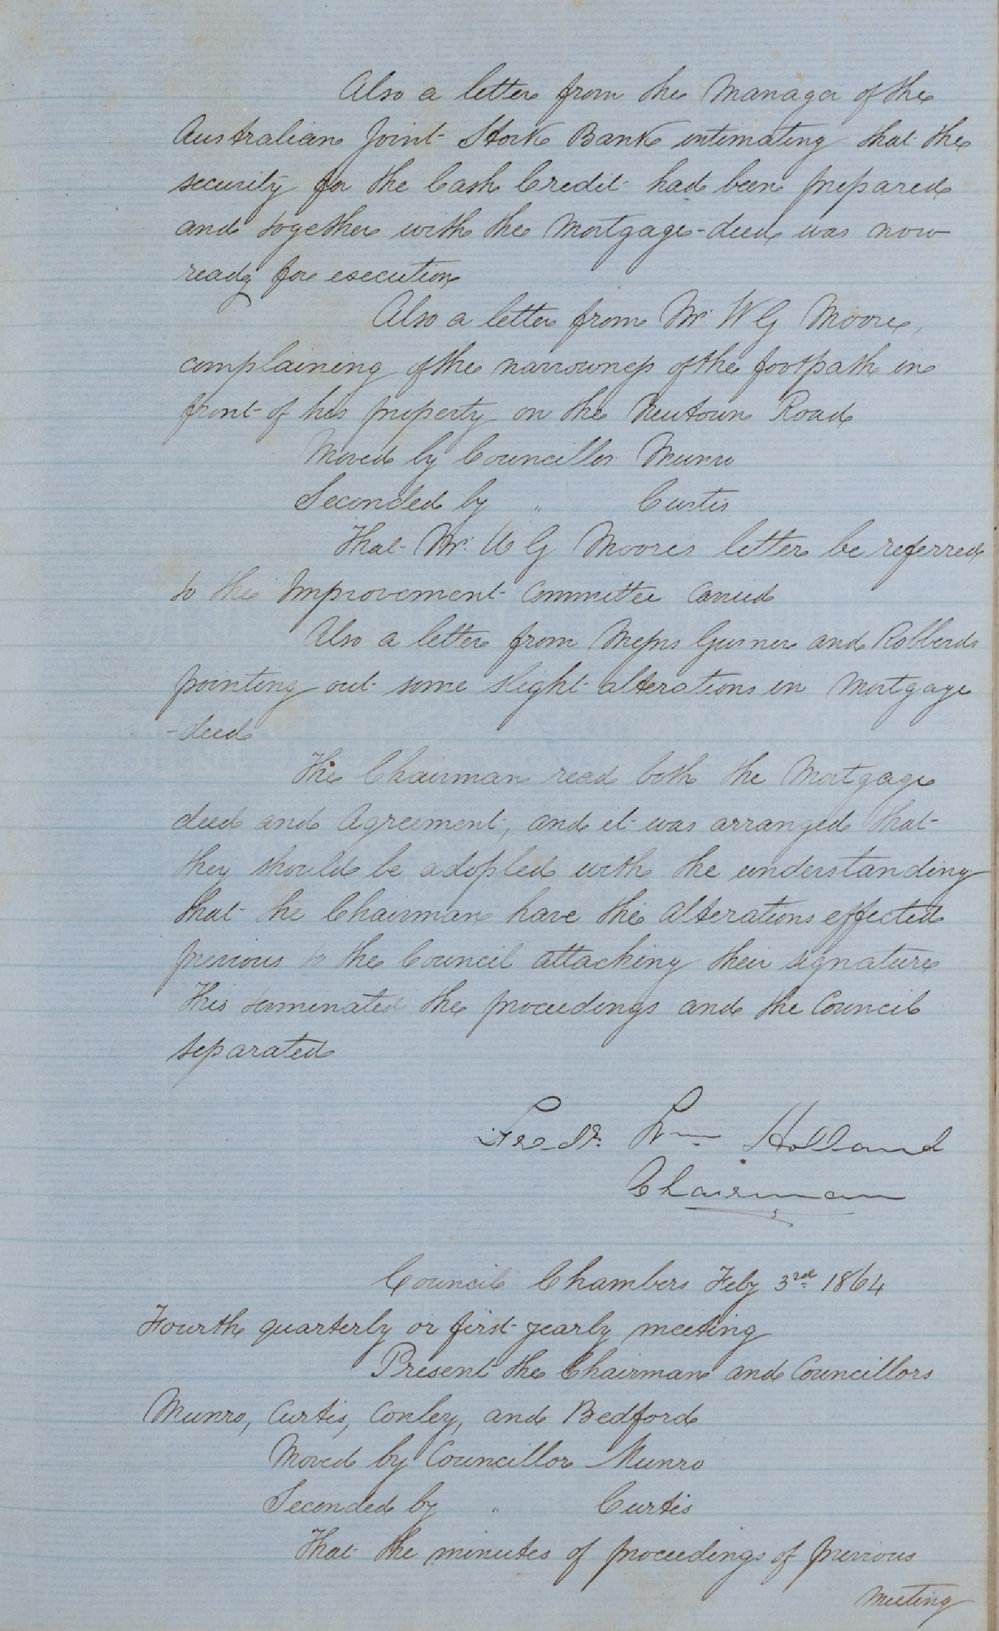 Also a letter from the Manager of the
Australian Joint Stock Bank intimating that the
security for the Cash Credit had been prepared
and together with the Mortgage-deed was now
ready for execution
Also a letter from Mr. W G Moore,
complaining of the narrowness of the footpath in
front of his property on the Newtown Road
Moved by Councillor Munro
Seconded by " Curtis
That Mr. W G Moore's letter be referred
to the Improvement Committee Carried
Also a letter from Messrs Gurner and Robberds
pointing out some slight alterations in Mortgage
-deed
The Chairman read both the Mortgage
deed and Agreement, and it was arranged that
they should be adopted with the understanding
that the Chairman have the Alterations effected
previous to the Council attacking their signature
This terminated the proceedings and the Council
separated
Fredk. Wm. Holland
Chairman
Council Chambers Feby 3rd 1864
Fourth quarterly or first yearly meeting
Present the Chairman and Councillors
Munro, Curtis, Conley, and Bedford
Moved by Councillor Munro
Seconded by " Curtis
That the minutes of proceedings of previous
meeting